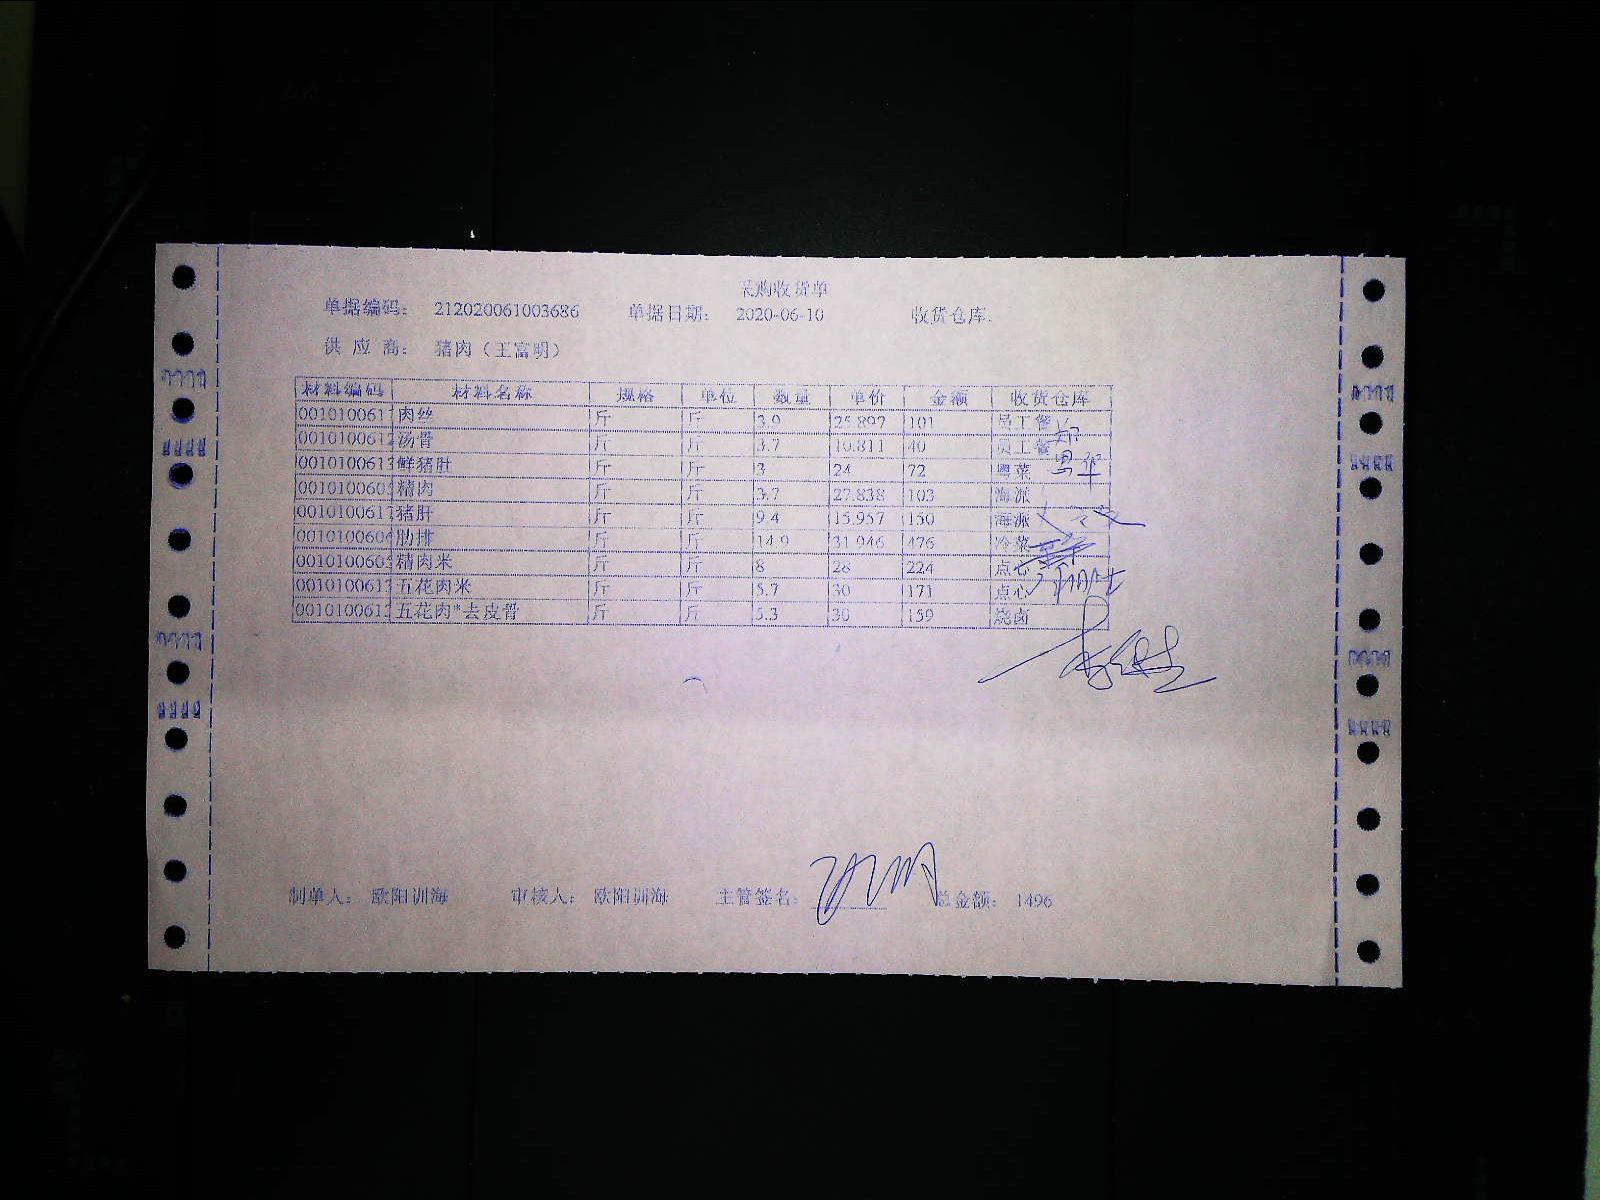 采购收货单
单据编码: 212020061003686 单据日期: 2020-06-10 收货仓库:
供 应 商: 猪肉(王富明)
材料编码 材料名称 规格 单位 数量 单价 金额 收货仓库
0010100611 肉丝 斤 斤 3.9 25.897 101 员工餐
0010100612 汤骨 斤 斤 3.7 10.811 40 员工餐
0010100613 鲜猪肚 斤 斤 3 24 72 粤菜
001010060 精肉 斤 斤 3.7 27.838 103 海派
0010100611 猪肝 斤 斤 9.4 15.957 150 海派
001010060 肋排 斤 斤 14.9 31.946 476 冷菜
001010060 精肉米 斤 斤 8 28 224 点心
0010100613 五花肉米 斤 斤 5.7 30 171 点心
001010061 五花肉*去皮骨 斤 斤 5.3 30 159 烧卤
制单人: 欧阳训海 审核人: 欧阳训海 主管签名: 总金额: 1496